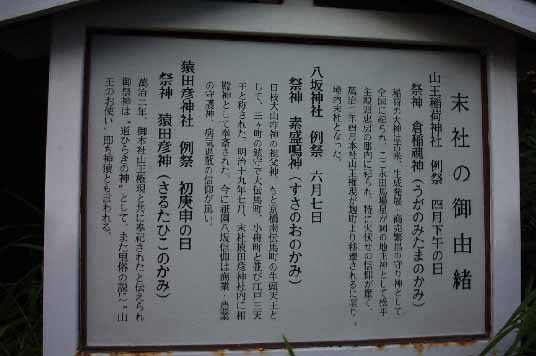 末社の御由緒
山王稲荷神社 例祭 四月下午の日
祭神 倉稲魂神(うがのみたまのかみ)
稲荷の大神は古来、生成発展、商売繁昌の守り神として
全国に祀られ、ここ永田馬場星が岡の地主神として松平
主殿頭忠房の邸内に祀られ、特に火伏せの信仰が篤く、
萬治二年四月本社山王権現が麹町より移遷されるに至り、
境内末社となった。
八坂神社 例祭 六月七日
祭神 素盛鳴神(すさのおのかみ)
日枝大山咋神の祖父神。もと京橋南伝馬町の牛頭天王と
して、三ヶ町の鎮守で大伝馬町、小舟町と並び江戸三天
王と称された。明治十九年七月、末社猿田彦神社内に相
殿神として奉斎された。今に祇園八坂信仰は商業、農業
の守護神、病気退散の信仰が篤い。
猿田彦神社 例祭 初庚申の日
祭神 猿田彦神(さるたひこのかみ)
萬治二年、御本社山王権現と共に奉祀されたと伝えられ
御祭神は"道ひらきの神"として、また里俗の説に"山
王のお使い"即ち神猿とも言われる。